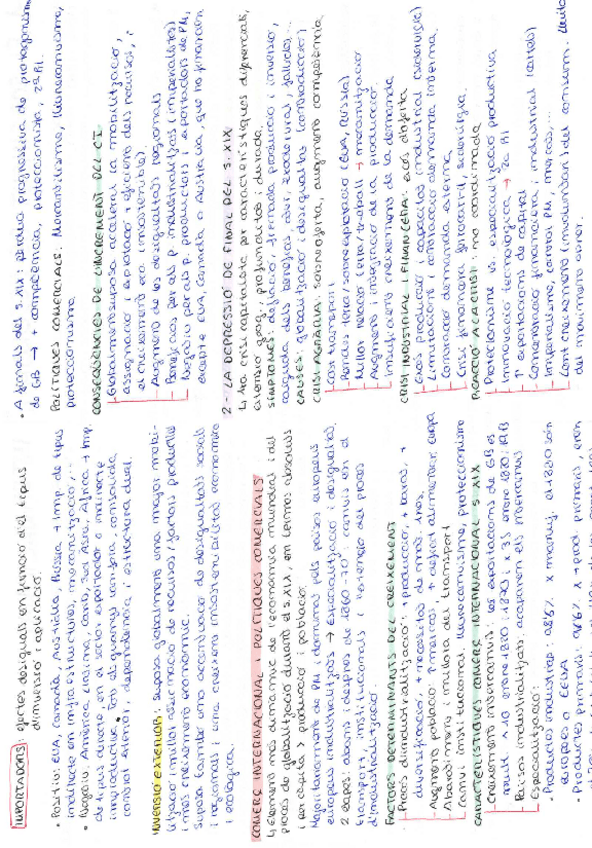 IMPORTADORS: efectes desiguals en funció del tipus
d'inversió i aplicació.
• Positiu: EUA, Canadà, Austràlia, Rússia → Imp. de tipus
indirecte en infraestructures, mecanització,...
• Negatiu: Amèrica Llatina, Carib, Sud Àsia, Àfrica → Imp.
de tipus directe en el sector exportador o indirecte
improductiva. Tot als grans comptes, consolida
control exterior, dependència i estructura dual.
INVERSIÓ EXTERIOR: suposa globalment una major mobi-
lització i millor assignació de recursos/factors productius
i més creixement econòmic.
Suposa també una accentuació de desigualtats socials
i regionals i una creixent insostenibilitat econòmica
i ecològica.
COMERÇ INTERNACIONAL I POLÍTIQUES COMERCIALS
↳ Element més dinàmic de l'economia mundial i del
procés de globalització durant el s. XIX, en termes absoluts
i per càpita > producció i població.
Majoritàriament de PM i dominat pels països europeus
europeus industrialitzats → Especialització i desigualtat.
2 etapes: abans i després de 1860-70: canvis en el
transport, institucionals i l'extensió del procés
d'industrialització.
FACTORS DETERMINANTS DEL CREIXEMENT
Procés d'industrialització: + producció, + barat, +
diversificació, + necessitat de mat. primes.
Augment població: ↑ mercats, + dèficit alimentari Europa
Abaratiment i millora del transport
Canvi institucional, lliurecanvisme, proteccionisme
CARACTERÍSTIQUES COMERÇ INTERNACIONAL S. XIX
Creixement intercanvis: les exportacions de GB es
mult. x 10 entre 1830 i 1870 i x 3'5 entre 1870 i 1913
Països industrialitzats: acaparen els intercanvis
Especialització:
• Productes industrials: 98'5% x manuf. el 1830 són
europees o EEUU
• Productes primaris: 96'6% x → prod. primaris, eren
• A finals del s. XIX: pèrdua progressiva de protagonisme
de GB → + competència, proteccionisme, 2a RI.
POLÍTIQUES COMERCIALS: Mercantilisme, lliurecanvisme,
proteccionisme.
CONSEQÜÈNCIES DE L'INCREMENT DEL CI
Globalment suposa accelerar la mobilització,
assignació i explotació + eficient dels recursos, i
el creixement eco. (insostenible).
Augment de les desigualtats regionals
Beneficiós per als p. industrialitzats (imperialistes)
Negatiu per als p. productors i exportadors de PM,
excepte EUA, Canadà o Austràlia, que ho
2 - LA DEPRESSIÓ DE FINAL DEL S. XIX
↳ 1ra crisi capitalista per característiques diferencials,
extensió geog., profunditat i durada.
SÍMPTOMES: deflació, frenada producció i inversió,
caiguda dels beneficis, atur, estructural, fallides,...
CAUSES: globalització i desigualtat (contradicció)
CRISI AGRÀRIA: sobreoferta, augment competència
Cost transport
Renda terra/sobreexplotació (EUA, Rússia)
Millor relació terra/treball → mecanització
Augment i integració de la producció
Insuficient creixement de la demanda
CRISI INDUSTRIAL I FINANCERA: excés d'oferta
Gran producció, capacitat industrial excedencial
Limitacions i contracció demanda interna.
Contracció demanda externa.
Crisi financera ferrocarril, siderúrgia.
REACCIÓ A LA CRISI: no coordinada
Proteccionisme vs. especialització productiva
Innovació tecnològica → 2a RI
↑ exportacions de capital
Concentració financera i industrial (cartels)
Imperialisme, control PM, mercats,...
Lent creixement (involuntari) del consum.
del moviment obrer.